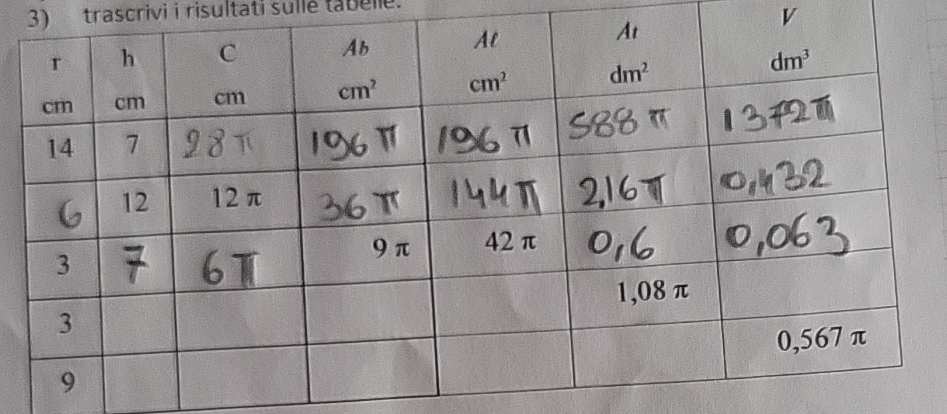 3) trascrivi i risultati sulle tabelle.
r cm h cm C cm Ab cm² Aℓ cm² At dm² V dm³
14 7 28π 196π 196π 588π 1372π
6 12 12π 36π 144π 2,16π 0,432
3 7 6π 9π 42π 0,6 0,063
3 1,08π
9 0,567π